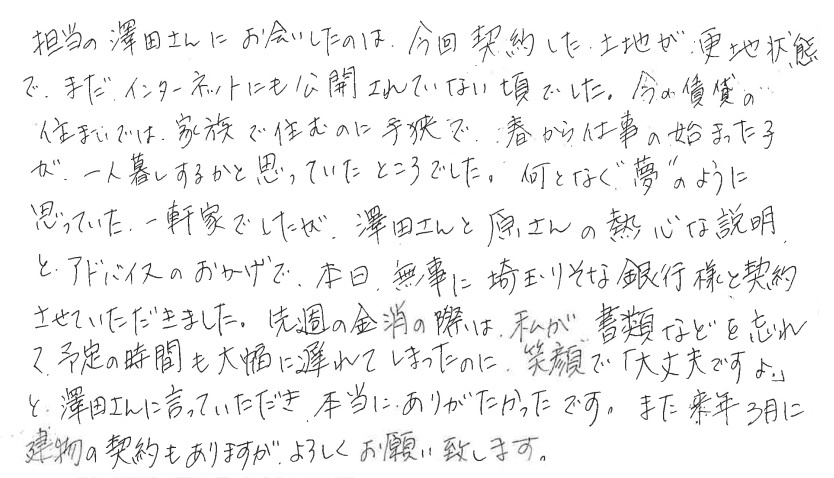 担当の澤田さんにお会いしたのは、今回契約した土地が更地状態
で、まだインターネットにも公開されていない頃でした。今の賃貸の
住まいでは、家族で住むのに手狭で、春から仕事の始まった子
が、一人暮しするかと思っていたところでした。何となく"夢"のように
思っていた一軒家でしたが、澤田さんと原さんの熱心な説明
と、アドバイスのおかげで、本日、無事に埼玉りそな銀行様と契約
させていただきました。先週の金消の際は、私が書類などを忘れ
て、予定の時間も大幅に遅れてしまったのに、笑顔で「大丈夫ですよ。」
と、澤田さんに言っていただき、本当にありがたかったです。また来年3月に
建物の契約もありますが、よろしくお願い致します。